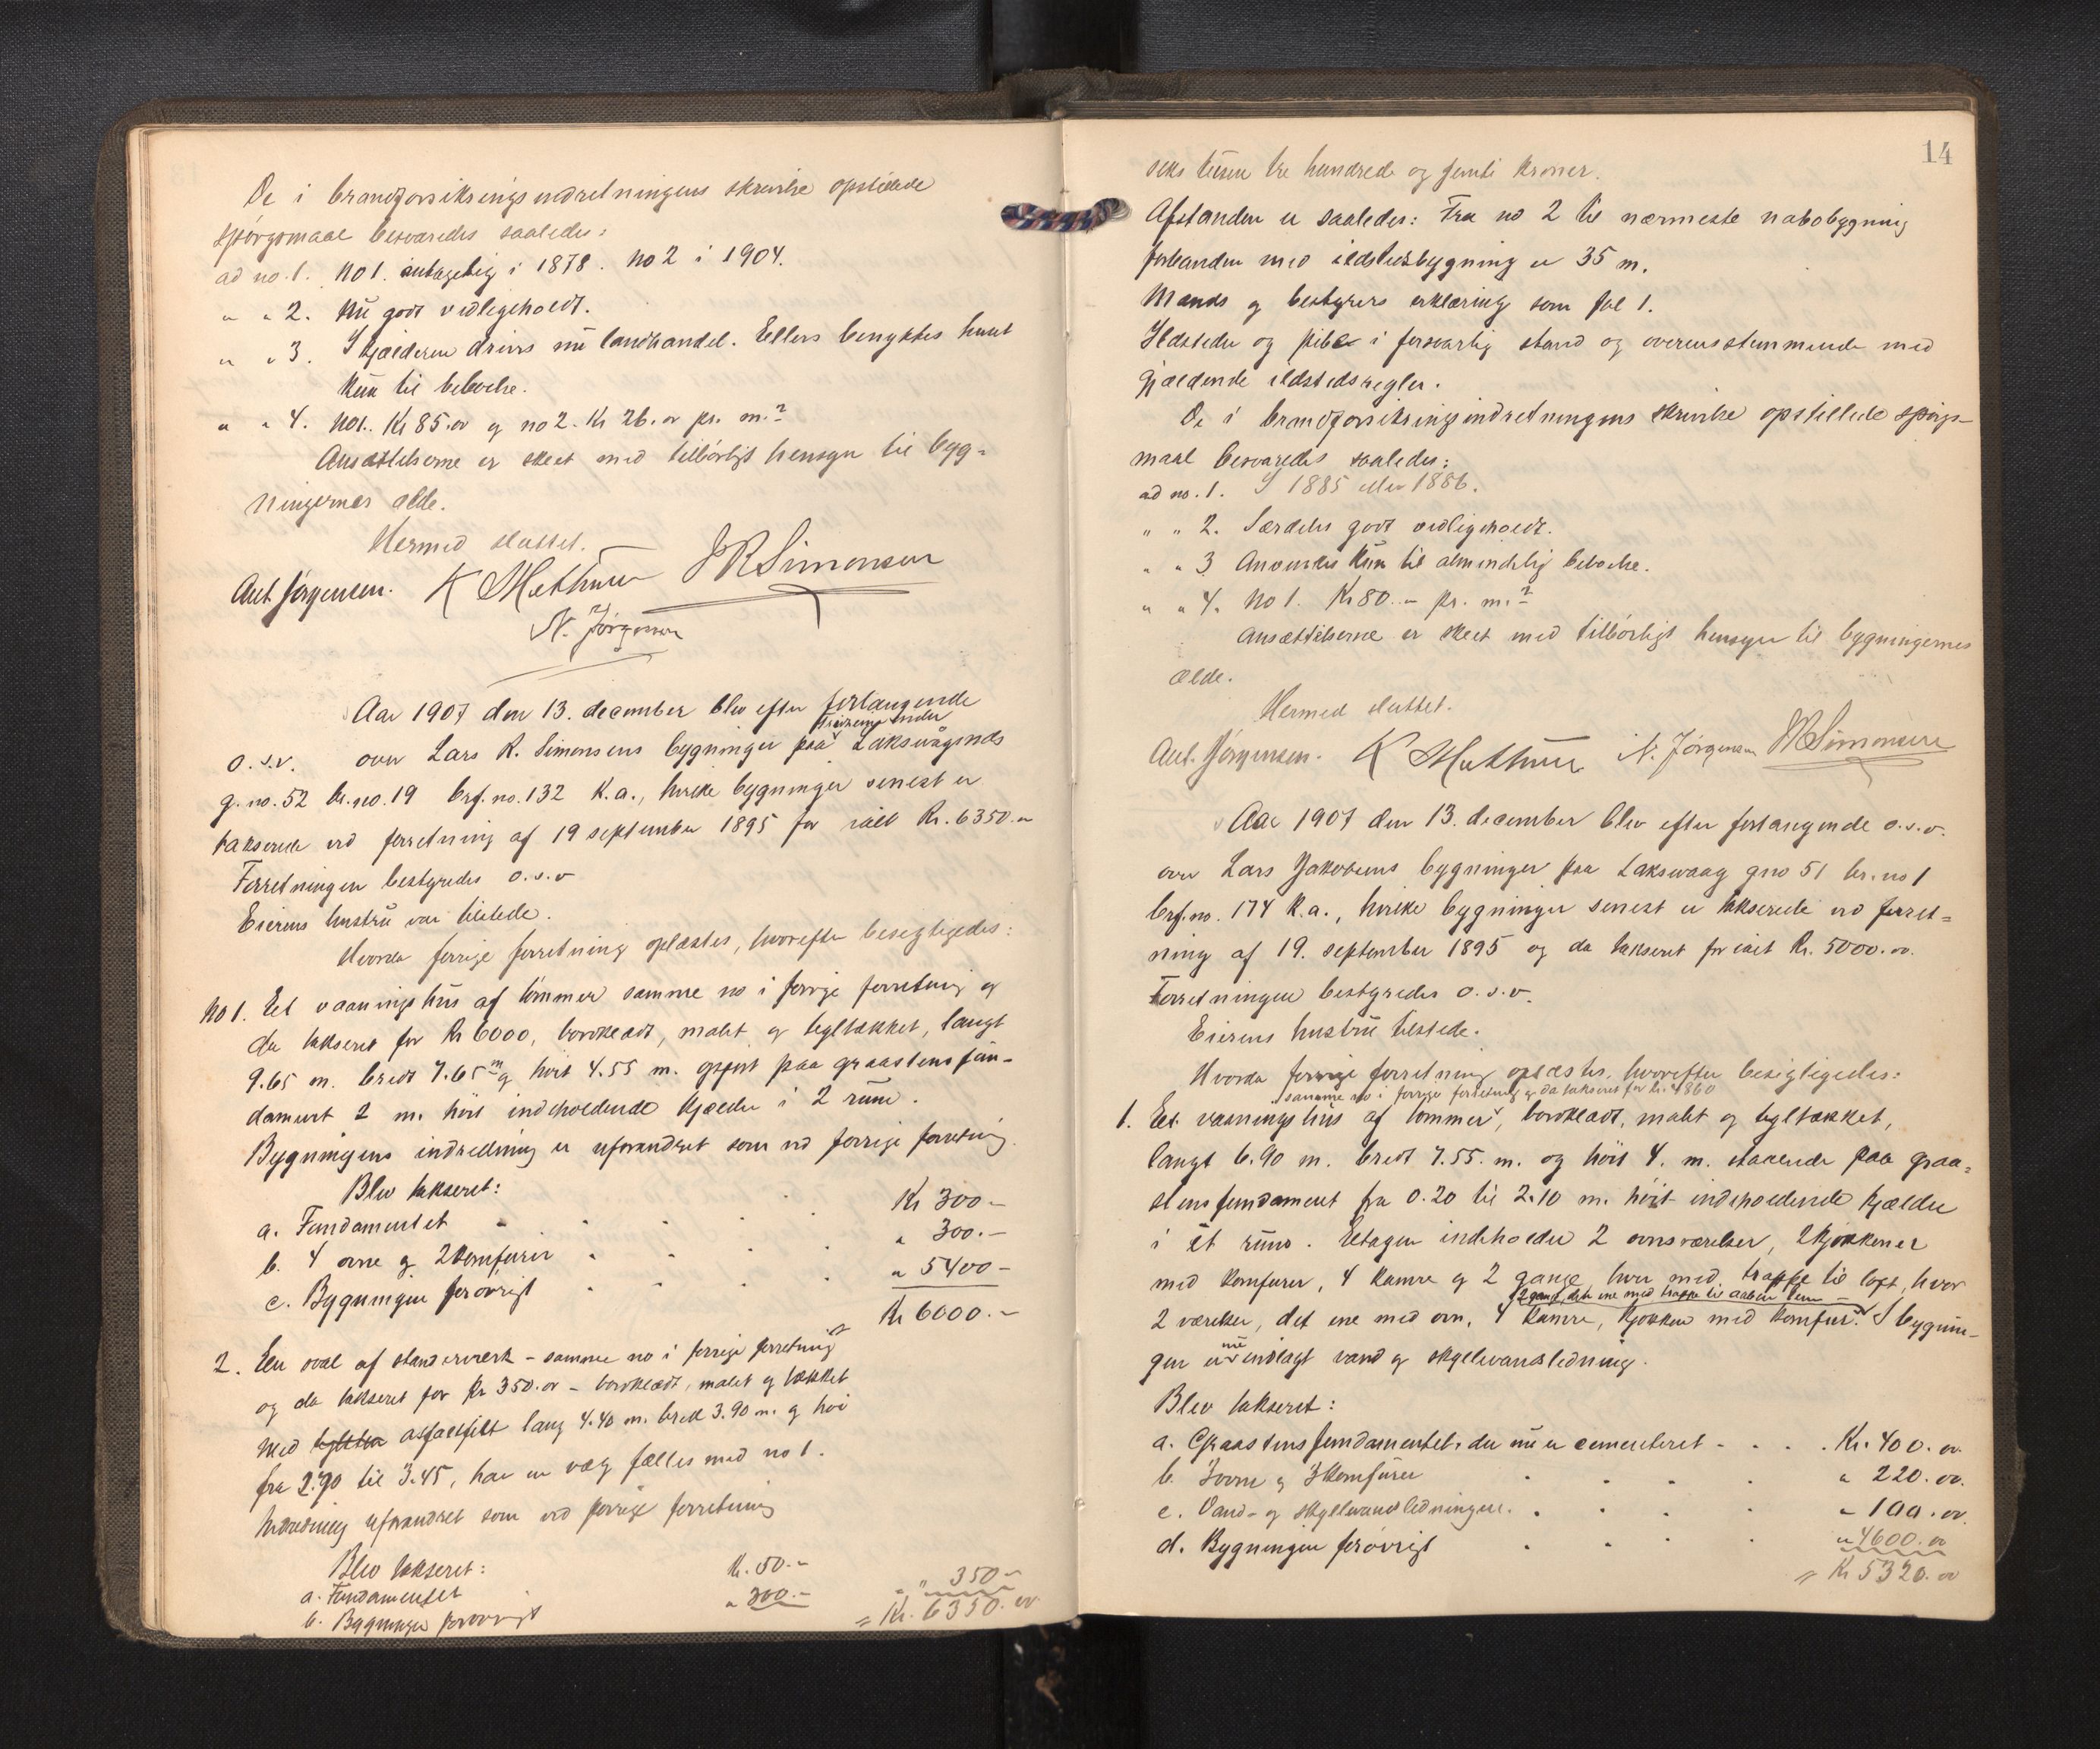 De i brandforsikringsindretningens skrivelse opstillede
spörgsmaal besvaredes saaledes:
ad no. 1. No 1. antagelig i 1878. No 2 i 1904.
" " 2. Nu godt vedligeholdt.
" " 3. I kjælderen drives nu landhandel. Ellers benyttes huset
kun til beboelse.
" " 4. No 1. Kr 85.00 og no 2. Kr 26.00 pr. m.²
Ansættelserne er skeet med tilbörligt hensyn til byg-
ningernes ælde.
Hermed sluttet.
Ant. Jørgensen. K Mathisen J R Simonsen
N. Jörgensen
Aar 1907 den 13. december blev efter forlangende
o.s.v. over Lars R. Simonsens bygninger paa Laksvågsnds
g. no. 52 br. no. 19 brf. no. 132 K.a., hvilke bygninger senest er
takserede ved forretning af 19 september 1895 for ialt Kr. 6350.00
Forretningen bestyredes o.s.v
Eierens hustru var tilstede.
Hvorda forrige forretning oplæstes, hvorefter besigtigedes:
No 1. Et vaaningshus af tömmer samme no i forrige forretning og
da takseret for Kr 6000, bordklædt, malet og tegltækket, langt
9.65 m. bredt 7.65 m og höit 4.55 m. opfört paa graastensfun-
dament 2 m. höit indeholdende kjælder i 2 rum.
Bygningens indredning er uforandret som ved forrige forretning.
Blev takseret:
a. Fundamentet Kr 300 –
b. 4 ovne og 2 komfurer " 300. –
c. Bygningen forövrigt " 5400 –
Kr 6000. –
2. En sval af standerværk – samme no i forrige forretning
og da takseret for Kr 350.00 – bordklædt, malet og tækket
med asfaltfilt lang 4.40 m. bred 3.90 m. og höi
fra 2.90 til 3.45, har en væg fælles med no 1.
Indredning uforandret som ved forrige forretning
Blev takseret:
a. Fundamentet Kr. 50. –
b. Bygningen forövrigt " 300. – " 350 –
= Kr. 6350.00
14
seks tusen tre hundrede og femti kroner.
Afstanden er saaledes: Fra no 2 til nærmeste nabobygning
forbunden med ildstedsbygning er 35 m.
Mænds og bestyrers erklæring som fol 1.
Ildsteder og piber i forsvarlig stand og overensstemmende med
gjældende ildstedsregler.
De i brandforsikringsindretningens skrivelse opstillede spörgs-
maal besvaredes saaledes:
ad no. 1. I 1885 eller 1886.
" " 2. Særdeles godt vedligeholdt.
" " 3 Anvendes kun til almindelig beboelse.
" " 4. No 1. Kr 80. – pr. m.²
Ansættelserne er skeet med tilbörligt hensyn til bygningernes
ælde.
Hermed sluttet.
Ant. Jørgensen. K Mathisen N. Jörgensen J R Simonsen
Aar 1907 den 13. december blev efter forlangende o.s.v.
over Lars Jakobsens bygninger paa Laksevaag gno 51 br. no 1
brf. no. 174 K.a., hvilke bygninger senest er takserede ved forret-
ning af 19. september 1895 og da takseret for ialt Kr. 5000.00.
Forretningen bestyredes o.s.v.
Eierens hustru tilstede.
Hvorda forrige forretning oplæstes, hvorefter besigtigedes:
samme no i forrige forretning og da takseret for kr. 4860
1. Et vaaningshus af tömmer, bordklædt, malet og tegltækket,
langt 6.90 m. bredt 7.55. m. og höit 4. m. staaende paa graa-
stensfundament fra 0.20 til 2.10 m. höit indeholdende kjælder
i et rum. Etagen indeholder 2 ovnsværelser, 2 kjökkener
med komfurer, 4 kamre og 2 gange, hver med trappe til loft, hvor
2 gange, det ene med trappe til
2 værelser, det ene med ovn, 4 kamre, kjökken med komfur. I bygnin-
gen er nu indlagt vand og skyllevandsledning.
Blev takseret:
a. Graastensfundamentet, der nu er cementeret Kr. 400.00
b. 3 ovne og 3 komfurer " 220.00.
c. Vand- og skyllevandsledningen. " 100.00.
d. Bygningen forövrigt " 4600.00
= Kr 5320.00